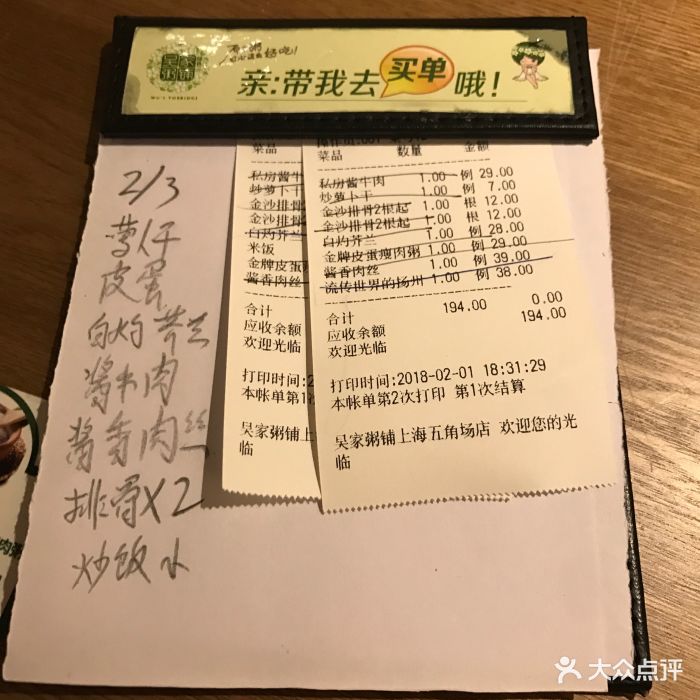 吴家粥铺
WU'S PORRIDGE
亲:带我去买单哦!
2/3
薏仁
皮蛋
白灼芥兰
酱牛肉
酱香肉丝
排骨X2
炒饭 小
菜品
私房酱牛
炒萝卜干
金沙排骨
金沙排骨
白灼芥兰
米饭
金牌皮蛋
酱香肉丝
合计
应收余额
欢迎光临
打印时间:2
本帐单第1次
吴家粥铺上
临
菜品 数量 金额
私房酱牛肉 1.00 例 29.00
炒萝卜干 1.00 例 7.00
金沙排骨2根起 1.00 根 12.00
金沙排骨2根起 1.00 根 12.00
白灼芥兰 1.00 例 28.00
金牌皮蛋瘦肉粥 1.00 例 29.00
酱香肉丝 1.00 例 39.00
流传世界的扬州 1.00 例 38.00
合计 194.00 0.00
应收余额 194.00
欢迎光临
打印时间:2018-02-01 18:31:29
本帐单第2次打印 第1次结算
吴家粥铺上海五角场店 欢迎您的光
临
肉粥
大众点评